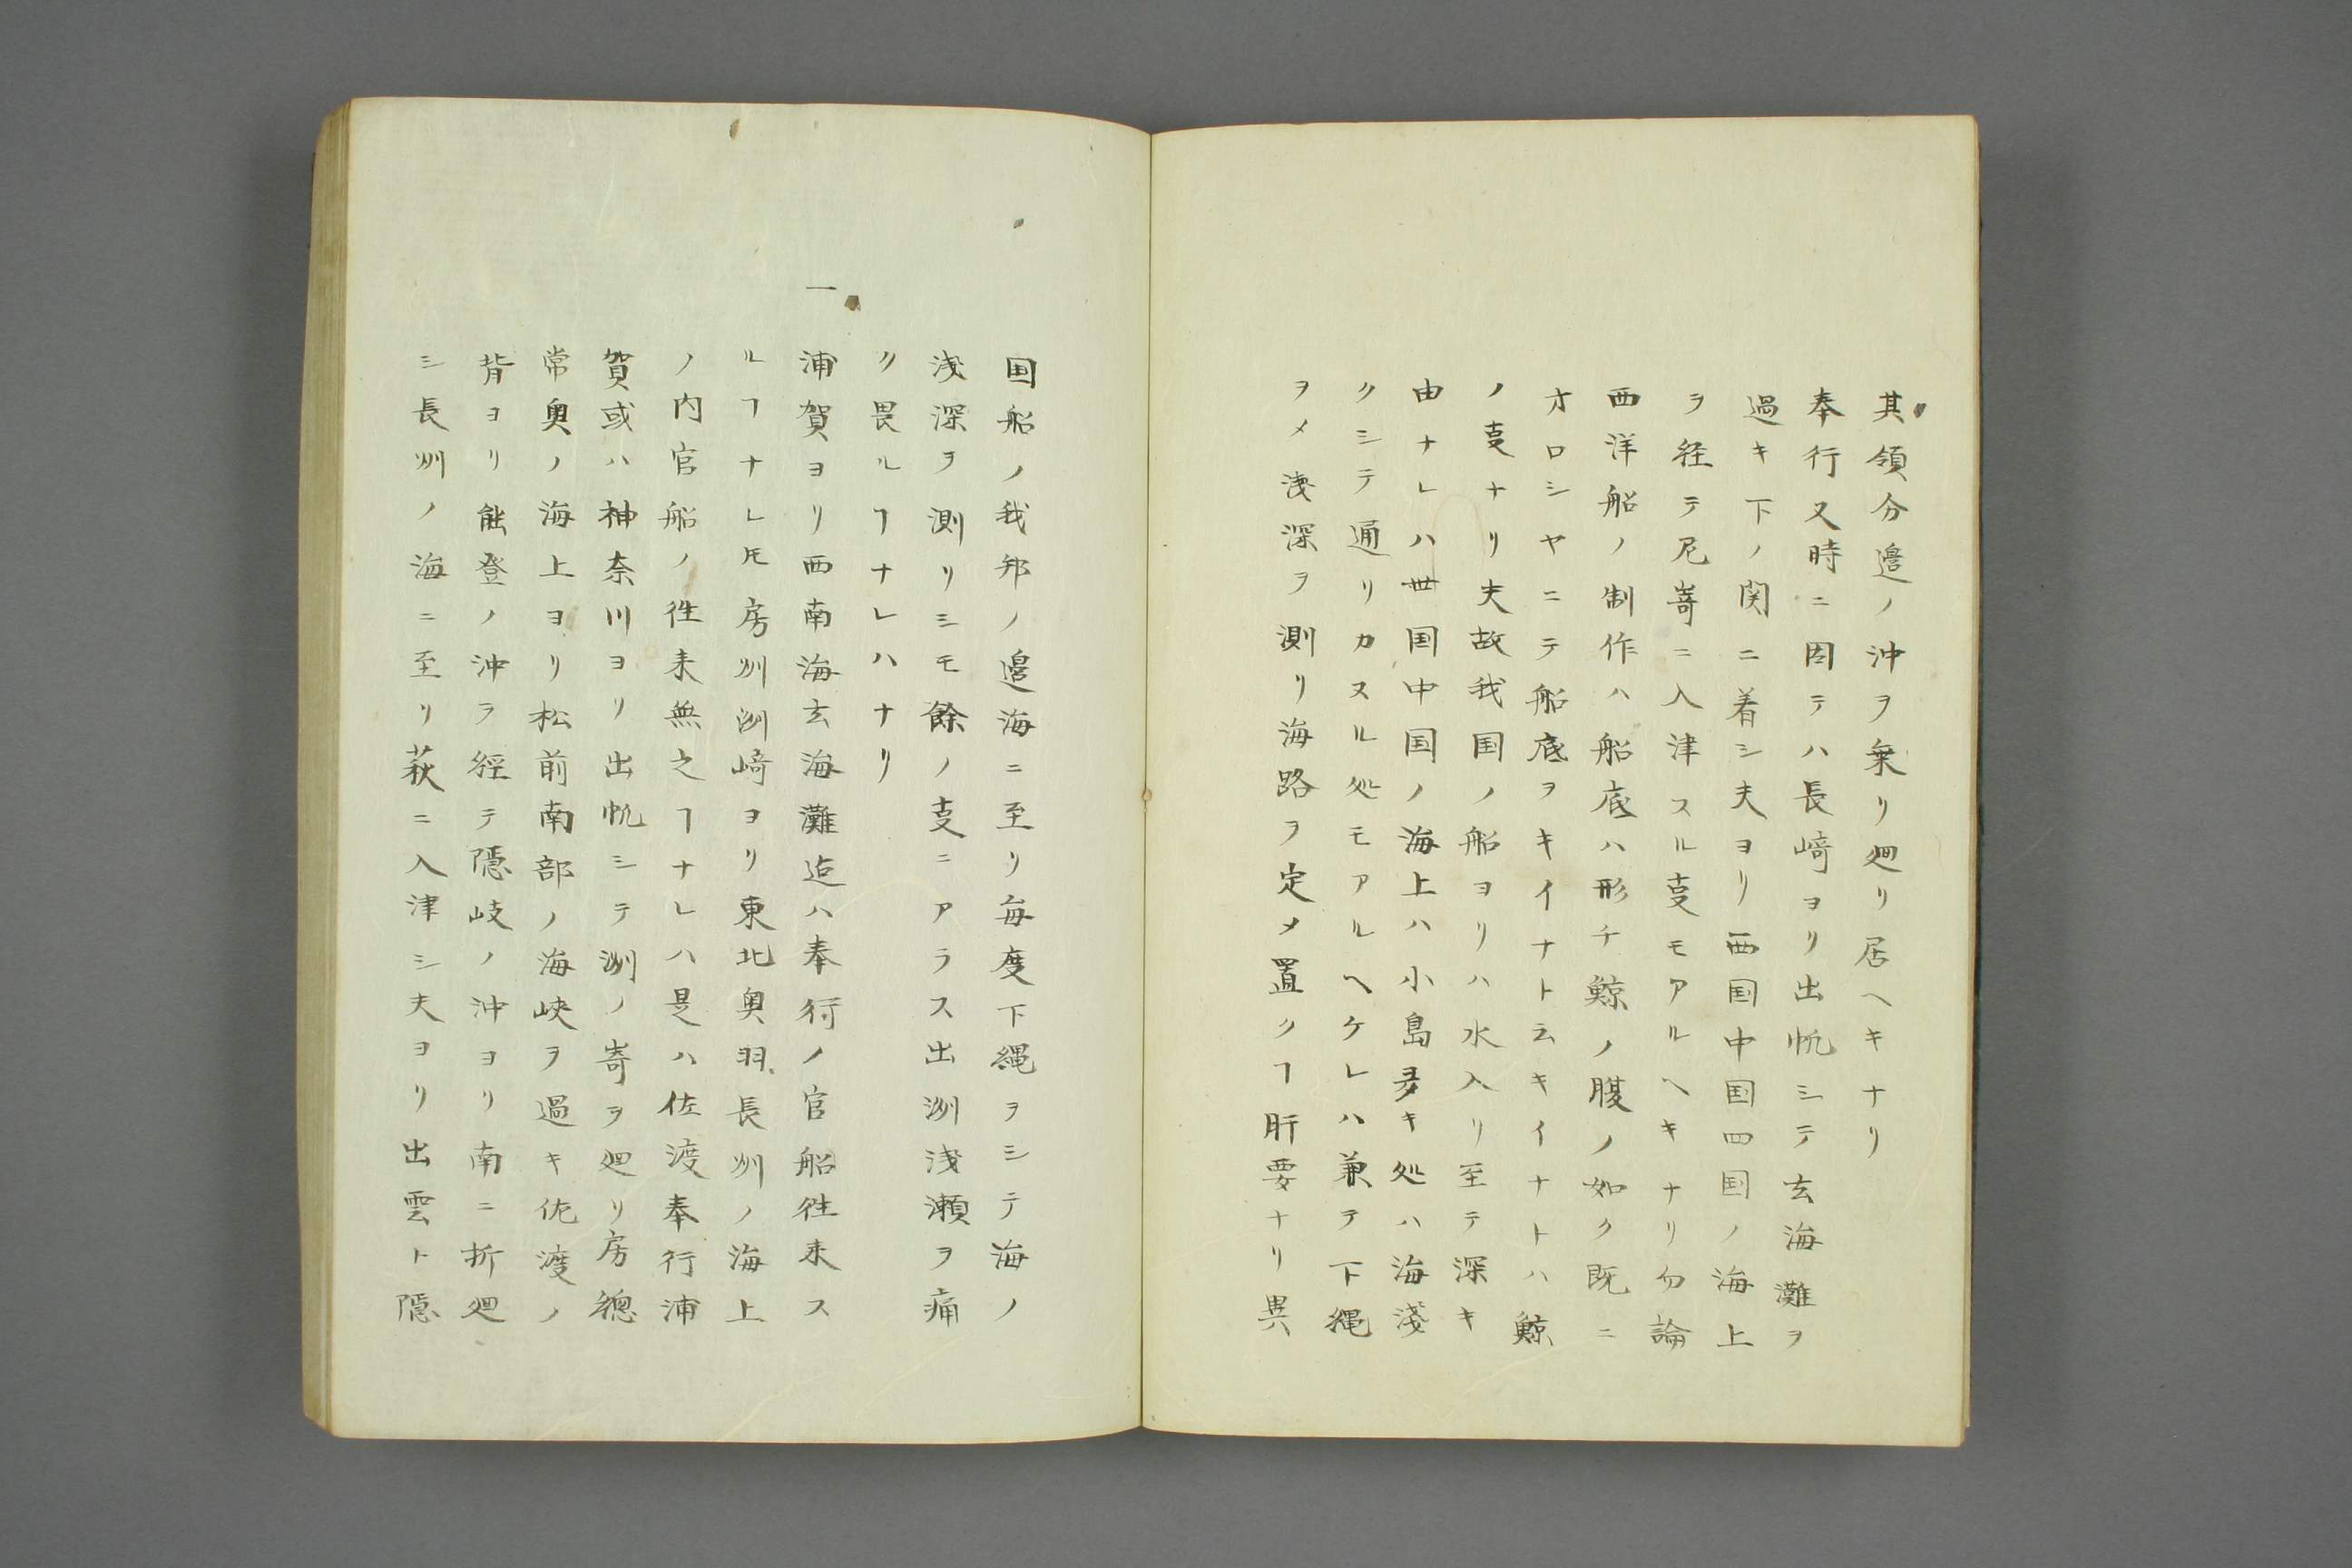 其領分邉ノ沖ヲ乗リ廻リ居ヘキナリ
奉行又時ニ因テハ長﨑ヨリ出帆シテ玄海灘ヲ
過キ下ノ関ニ着シ夫ヨリ西国中国四国ノ海上
ヲ経テ尼嵜ニ入津スル叓モアルヘキナリ勿論
西洋船ノ制作ハ船底ハ形チ鯨ノ腹ノ如ク既ニ
オロシヤニテ船底ヲキイナト云キイナトハ鯨
ノ叓ナリ夫故我国ノ船ヨリハ水入リ至テ深キ
由ナレハ丗国中国ノ海上ハ小島多キ処ハ海淺
クシテ通リカヌル処モアルヘケレハ兼テ下縄
ヲメ淺深ヲ測リ海路ヲ定メ置クヿ肝要ナリ異
国船ノ我邦ノ邉海ニ至リ毎度下縄ヲシテ海ノ
浅深ヲ測リシモ餘ノ叓ニアラス出洲浅瀬ヲ痛
ク畏ルヿナレハナリ
一
浦賀ヨリ西南海玄海灘迠ハ奉行ノ官船徃来ス
ルヿナレ𪜈房州洲﨑ヨリ東北奥羽長州ノ海上
ノ内官船ノ徃来無之ヿナレハ是ハ佐渡奉行浦
賀或ハ神奈川ヨリ出帆シテ洲ノ嵜ヲ廻リ房總
常奥ノ海上ヨリ松前南部ノ海峡ヲ過キ佐渡ノ
背ヨリ能登ノ沖ヲ經テ隠岐ノ沖ヨリ南ニ折廻
シ長州ノ海ニ至リ萩ニ入津シ夫ヨリ出雲ト隠